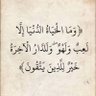 ﴿ وَمَا الْحَيَاةُ الدُّنْيَا إِلَّا
لَعِبٌ وَلَهْوٌ ۖ وَلَلدَّارُ الْآخِرَةُ
خَيْرٌ لِلَّذِينَ يَتَّقُونَ ﴾